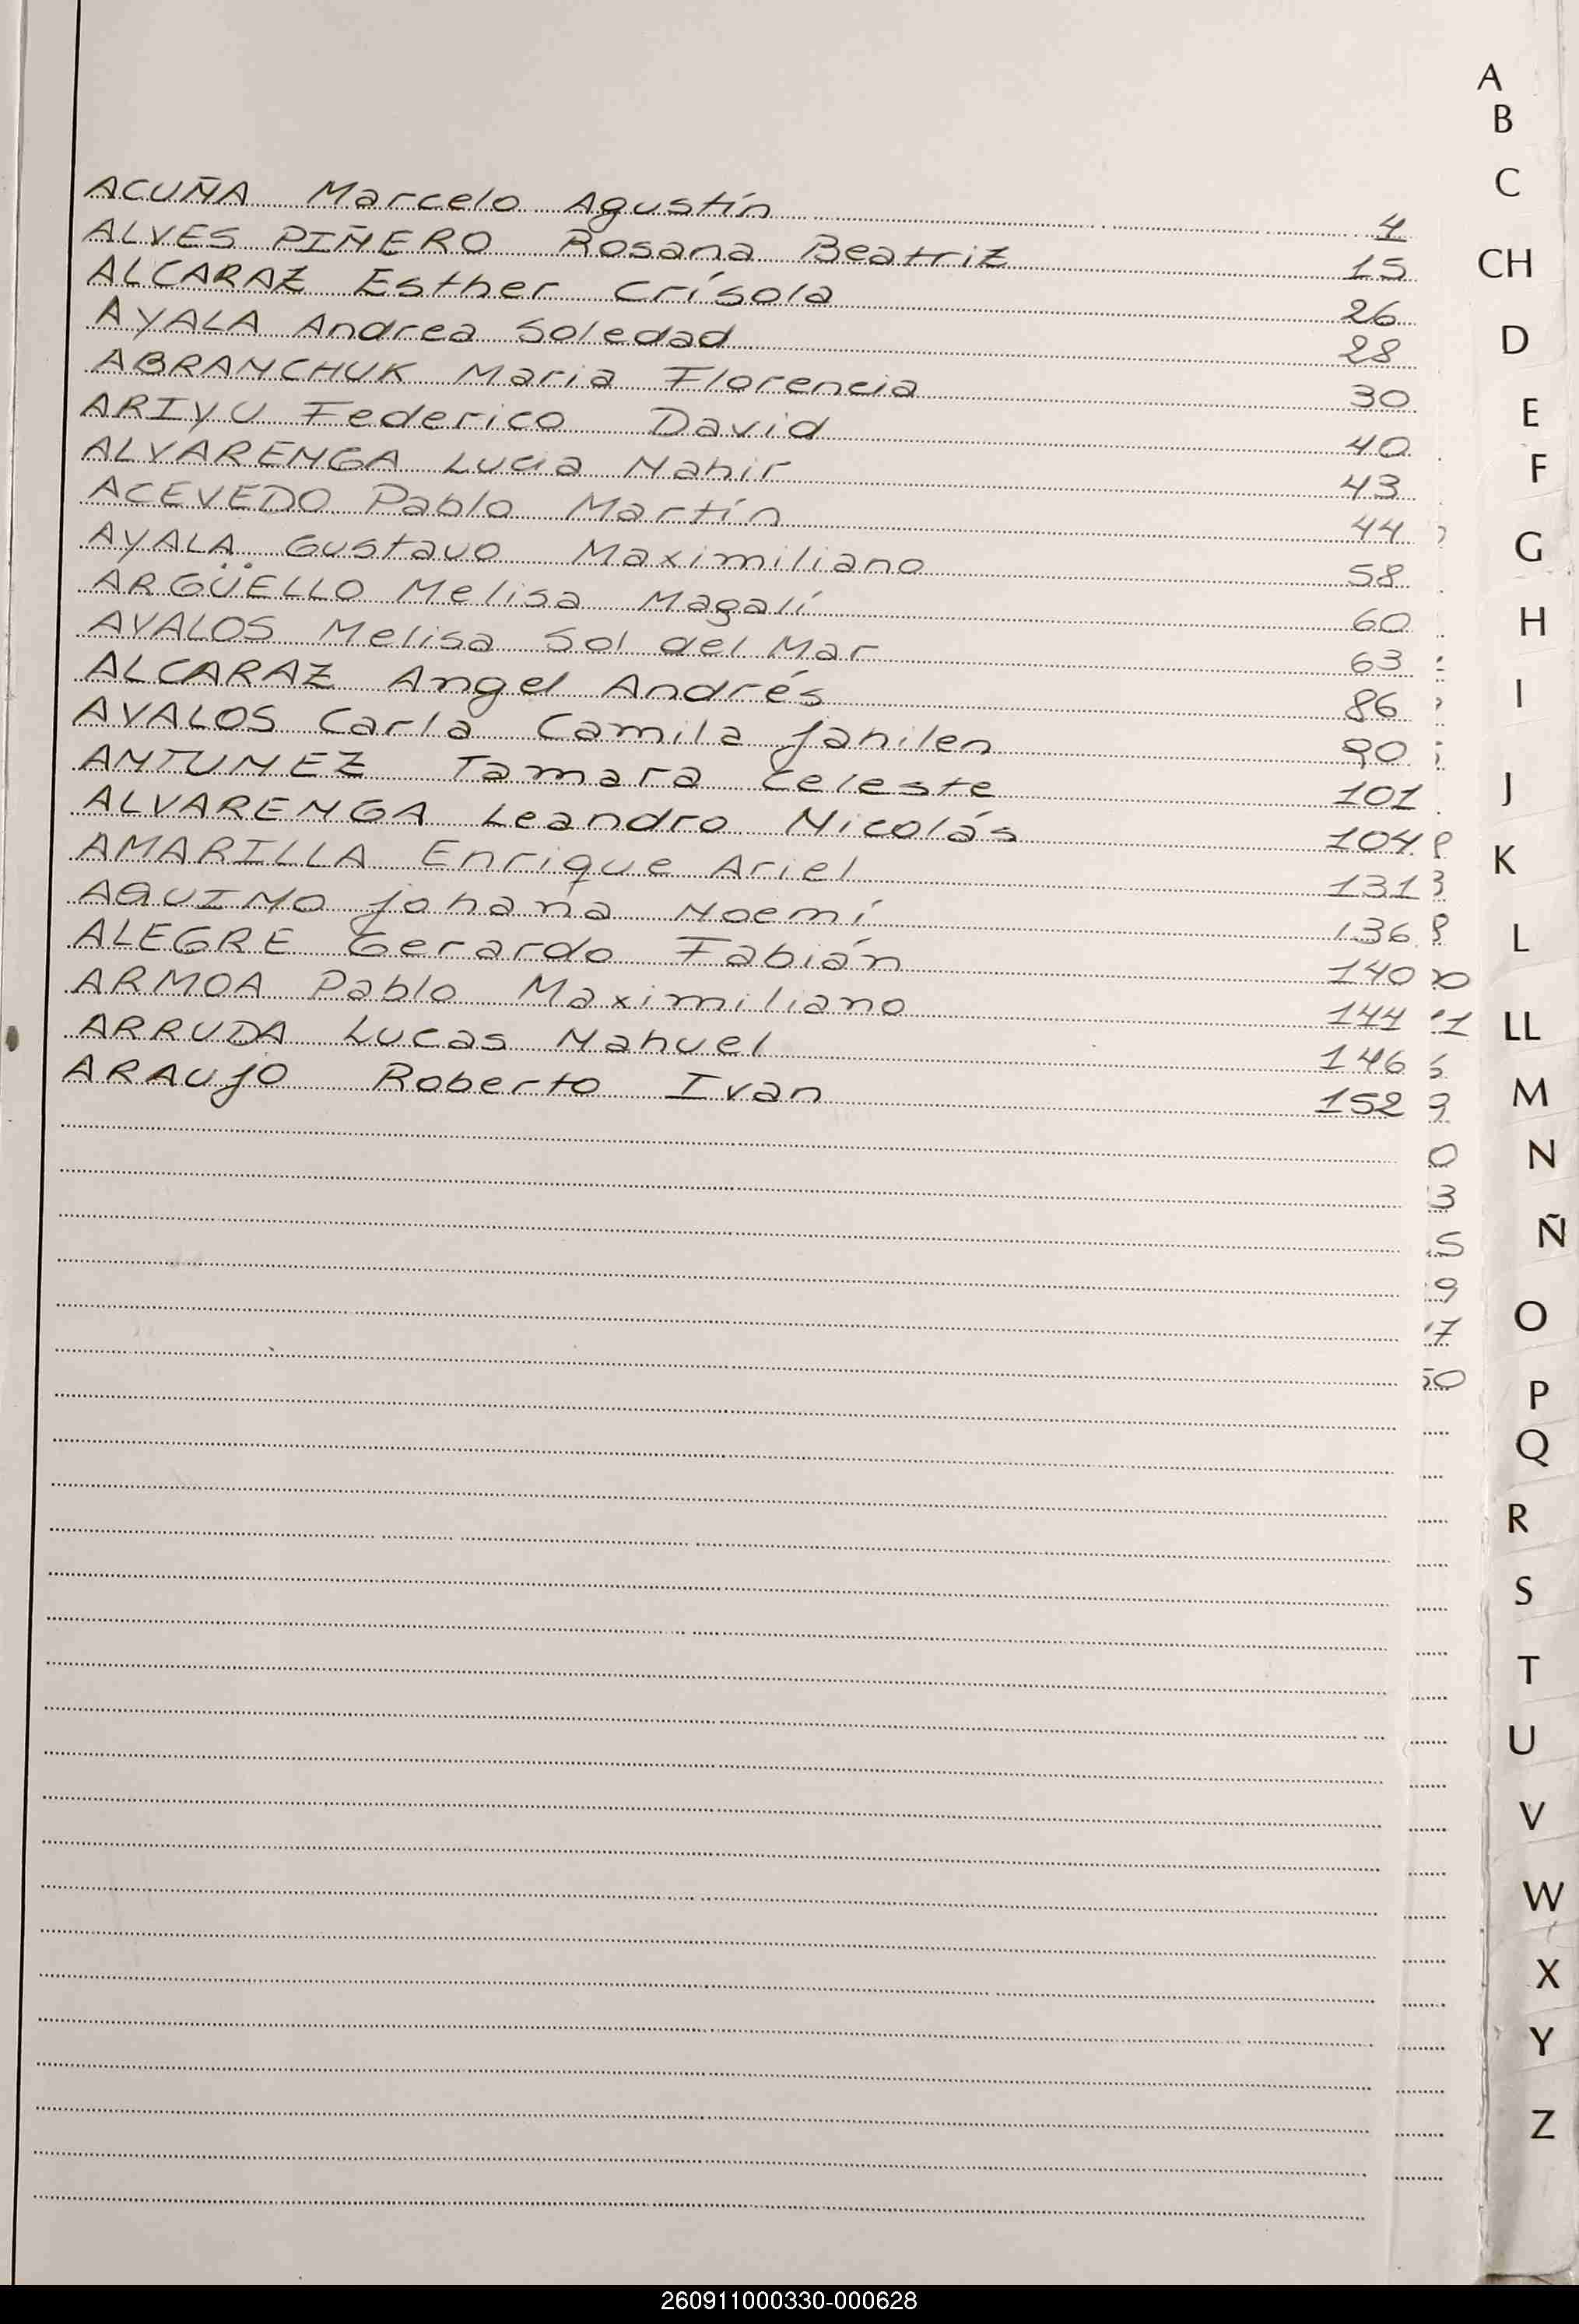 ACUÑA Marcelo Agustín 4
ALVES PIÑERO Rosana Beatriz 15
ALCARAZ Esther Crísola 26
AYALA Andrea Soledad 28
ABRANCHUK Maria Florencia 30
ARIYU Federico David 40
ALVARENGA Lucia Nahir 43
ACEVEDO Pablo Martín 44
AYALA Gustavo Maximiliano 58
ARGÜELLO Melisa Magalí 60
AVALOS Melisa Sol del Mar 63
ALCARAZ Angel Andrés 86
AVALOS Carla Camila Jahilen 90
ANTUNEZ Tamara Celeste 101
ALVARENGA Leandro Nicolás 104
AMARILLA Enrique Ariel 131
AQUINO Johana Noemí 136
ALEGRE Gerardo Fabián 140
ARMOA Pablo Maximiliano 144
ARRUDA Lucas Nahuel 146
ARAUJO Roberto Ivan 152
A
B
C
CH
D
E
F
G
H
I
J
K
L
LL
M
N
Ñ
O
P
Q
R
S
T
U
V
W
X
Y
Z
260911000330-000628